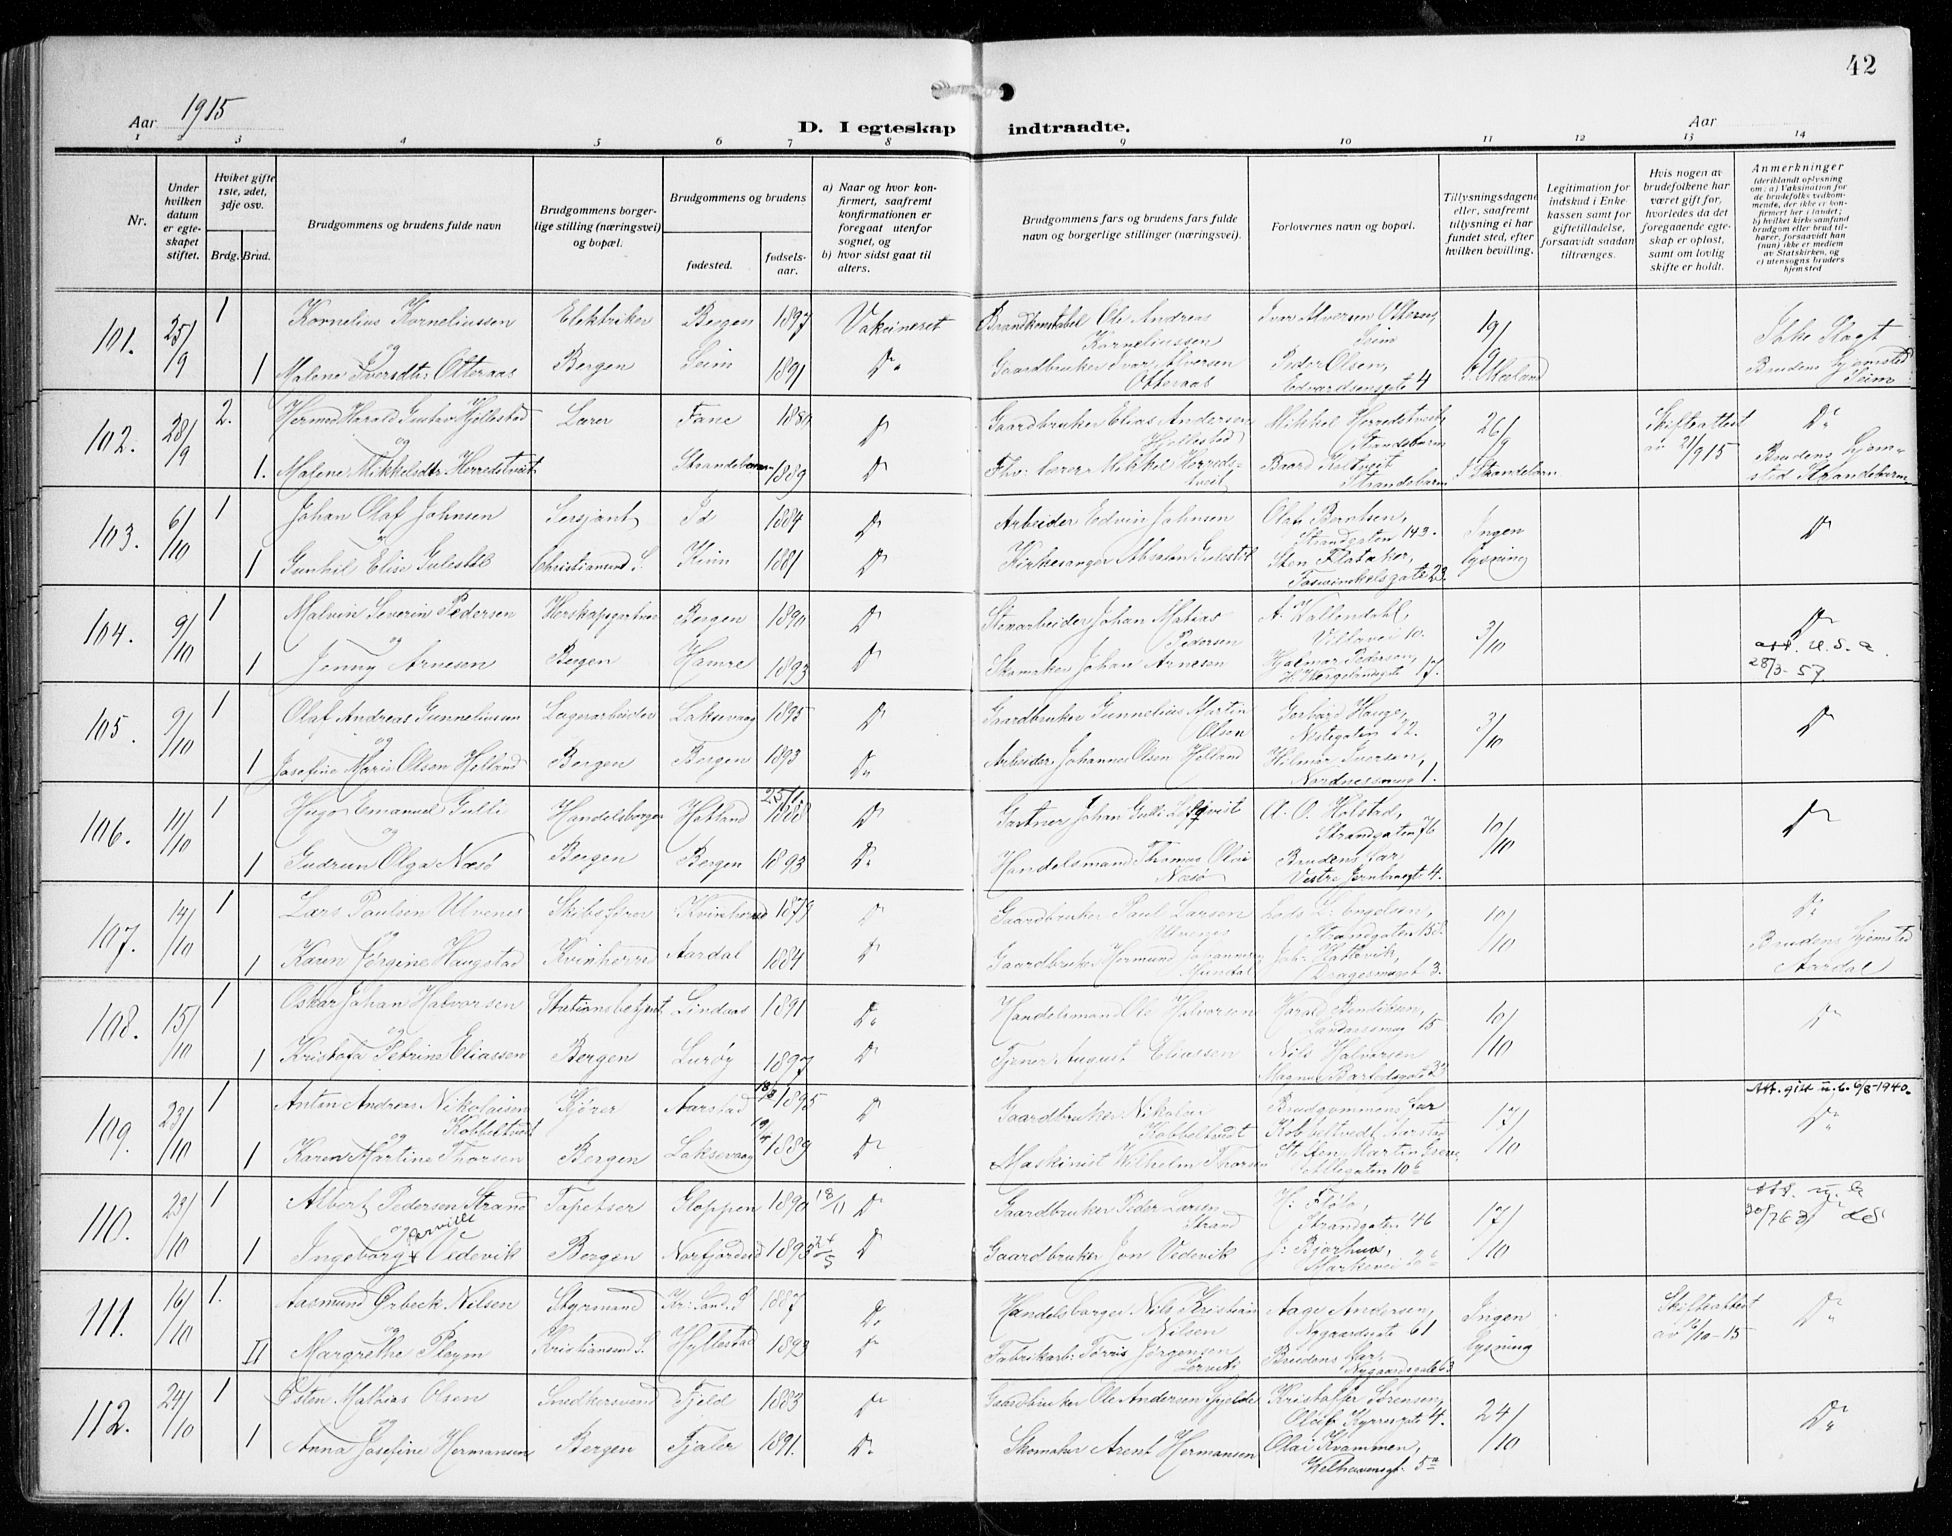 42
Aar 1915
D. I egteskap indtraadte.
Aar
1 2 3 4 5 6 7 8 9 10 11 12 13 14
Nr.
Under hvilken datum er egteskapet stiftet.
Hvilket gifte 1ste, 2det, 3dje osv.
Brdg. Brud.
Brudgommens og brudens fulde navn
Brudgommens borgerlige stilling (næringsvei) og bopæl.
Brudgommens og brudens
fødested.
fødselsaar.
a) Naar og hvor konfirmert, saafremt konfirmationen er foregaat utenfor sognet, og
b) hvor sidst gaat til alters.
Brudgommens fars og brudens fars fulde navn og borgerlige stillinger (næringsvei).
Forlovernes navn og bopæl.
Tillysningsdagene eller, saafremt tillysning ei har fundet sted, efter hvilken bevilling.
Legitimation for indskud i Enkekassen samt for giftetilladelse, forsaavidt saadan tiltrænges.
Hvis nogen av brudefolkene har været gift før, hvorledes da det foregaaende egteskap er opløst, samt om lovlig skifte er holdt.
Anmerkninger (deriblandt oplysning om: a) Vaksination for de brudefolks vedkommende, der ikke er konfirmert her i landet; b) hvilket kirkesamfund brudgom eller brud tilhører, forsaavidt han (hun) ikke er medlem av Statskirken, og c) utensogns bruders hjemsted
101. 25/9 1 Kornelius Korneliussen Elektriker Bergen 1897 Vakcineret Brandkonstabel Ole Andreas Korneliussen Ivar Alversen Otteraas, Seim 19/9 Ikke Slagt
og
1 Malene Iversdtr: Otteraas Bergen Seim 1891 Do Gaardbruker Ivar Alversen Otteraas Peder Olsen, Edvardsensgate 4 Brudens hjemsted Seim
102. 28/9 2. Hermod Harald Gustav Hjellestad Lærer Fane Do Gaardbruker Elias Andersen Hjellestad Mikkel Herredstveit, Strandebarm 26/9 Skifteattest av 21/9 15 Do
og
1. Malene Mikkelsdtr Herredstveit Strandebarm 1889 Do Fhv: lærer Mikkel Herredstveit Baard Strandebarm I Strandebarm Brudens hjemsted Strandebarm
103. 6/10 1 Johan Olaf Johnsen Sersjant Id 1884 Do Arbeider Edvin Johnsen Olaf Berntsen, Strandgaten 143. Ingen lysning Do
og
1 Gunhil Elise Gulestøl Christiansund S. Kinn 1881 Do Kirkesanger Absalon Gulestøl Sten Flataker, Foswinkelsgate 23.
104. 9/10 1 Malvin Severin Pedersen Herskapsgartner Bergen 1890 Do Stenarbeider Johan Matias Pedersen A. Wallendahl, Villavei 10. 3/10 Do
og
1 Jenny Arnesen Bergen Hamre 1893 Do Skomaker Johan Arnesen Hjalmar Pedersen, H. Wergelandsgate 17. att. U.S.A. 28/3-57
105. 9/10 1 Olaf Andreas Gunneliussen Lagerarbeider Laksevaag 1895 Do Gaardbruker Gunnelius Martin Olsen Gerhard Hauge, Nøstegaten 22. 3/10 Do
og
1 Josefine Marie Olsen Holland Bergen Bergen 1893 Do Arbeider Johannes Olsen Holland Hilmar Iversen, Nordnesveien 1.
106. 11/10 1 Hugo Emanuel Gulli Handelsborger Hatland 25/1 1888 Do Gartner Johan Gulli A. O. Holstad, Strandgaten 76 10/10 Do
og
1 Gudrun Olga Næsø Bergen Bergen 1893 Do Handelsmand Thomas Olai Næsø Brudens far Vestre Jernbanegt 4.
107. 14/10 1 Lars Paulsen Ulvenes Skibsfører Kvinherred 1879 Do Gaardbruker Paul Larsen Ulvenes Lods L: Engelsen, Strandgaten 10/10 Do
1 Karen Jørgine Haugstad Kvinherred Aardal 1884 Do Gaardbruker Hermund Johannessen Joh: Hatlevik, Dragesmuget 3. Brudens hjemsted Aardal
108. 15/10 1 Oskar Johan Halvorsen Stationsbetjent Lindaas 1891 Do Handelsmand Ole Halvorsen Harald Bendiksen, Landaasveien 15 10/10 Do
og
1 Kristofa Petrine Eliassen Bergen Lurøy 1897 Do Tjener August Eliassen Nils Halvorsen Magnus Barfodsgate
109. 23/10 1 Anton Andreas Nikolaisen Kobbeltvedt Kjører Aarstad 1895 Do Gaardbruker Nikolai Kobbeltvedt Brudgommens far Kobbeltvedt, Aarstad 17/10 Att. gitt u.b. 6/8-1940. Do
og
1 Karen Martine Thorsen Bergen Laksevaag 19/4 1889 Do Maskinist Wilhelm Thorsen Steffen Martin
110. 23/10 1 Albert Pedersen Strand Tapetser Gloppen 1890 18/11 Do Gaardbruker Peder Larsen Strand H: Flølo, Strandgaten 46 17/10
og
1 Ingeborg Vedevik Bergen Norfjordeid 1893 24/5 Do Gaardbruker Jon Vedevik J. Bjørhus,
111. 16/10 1. Aasmund Ørbeck Nilsen Styrmand Kr: Sand. S 1887 Do Handelsborger Nils Kristian Nilsen Aage Andersen, Nygaardsgate 61 Ingen lysning Skifteattest av 10-15 Do
og
II Margrethe Pleym Kristiansund S. Hyllestad 1893 Do Fabrikarb: Tørris Jørgensen Brudens far, Nygaardsgate 63
112. 24/10 1 Østen Mathias Olsen Snedkersvend Fjeld 1883 Do Gaardbruker Ole Andersen Gjelde Kristoffer Sørensen, Olaf Kyrresgate 4. 24/10 Do
og
1 Anna Josefine Hermansen Bergen Fjaler 1891. Do Skomaker Arent Hermansen Olai Kvammen, Welhavensgt: 5a